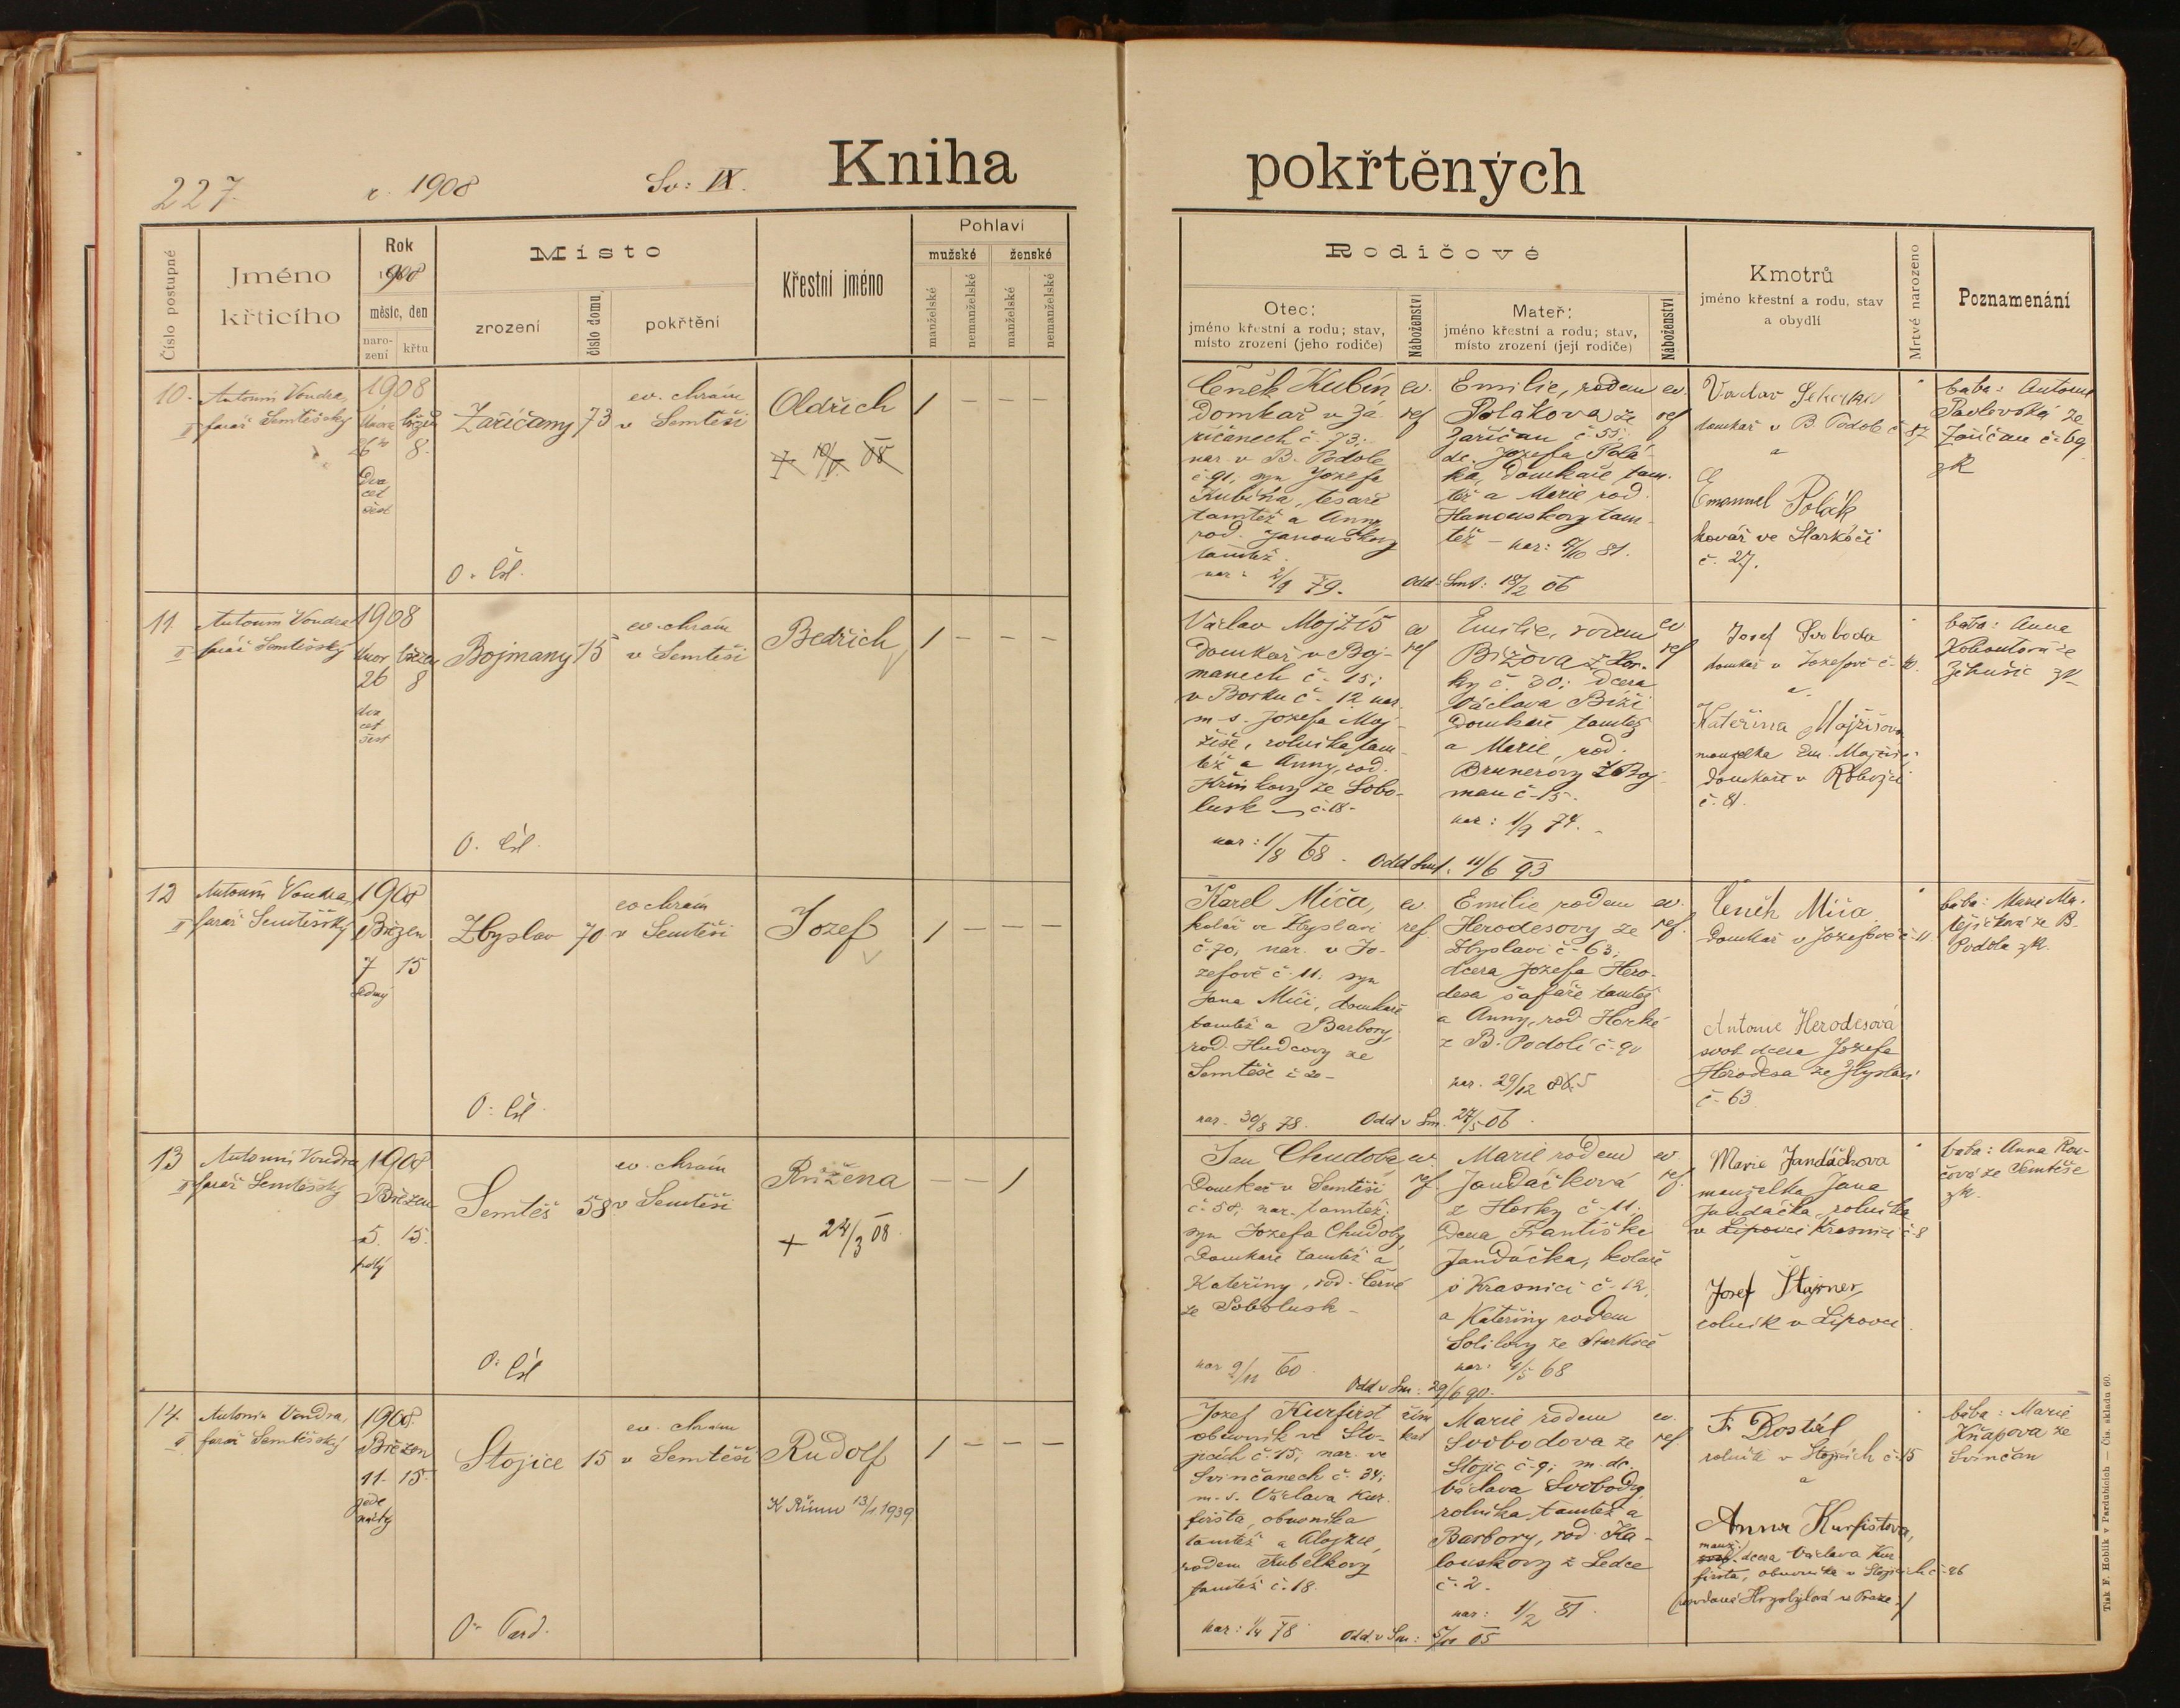 227.
r. 1908
Sv: IX.
Kniha
pokřtěných
Číslo postupné
Jméno
křticího
Rok
1908
měsíc, den
naro-
zení
křtu
Místo
zrození
číslo domu
pokřtění
Křestní jméno
Pohlaví
mužské
ženské
manželské
nemanželské
manželské
nemanželské
Rodičové
Otec:
jméno křestní a rodu; stav,
místo zrození (jeho rodiče)
Náboženství
Mateř:
jméno křestní a rodu; stav,
místo zrození (její rodiče)
Náboženství
Kmotrů
jméno křestní a rodu, stav
a obydlí
Mrtvě narozeno
Poznamenání
10.
Antonín Vondra,
farář Semtěšský
1908
Února březen
26 8.
Dva
cet
šest
Zaříčany 73
ev. chrám
v Semtěši
Oldřich
1 — — —
O. Čsl.
Čeněk Kubín,
Domkař v Za-
říčanech č. 73;
nar. v B. Podole
č. 91, syn Jozefa
Kubína, tesaře
tamtéž a Anny
rod. Janouškovy
tamtéž.
nar: 2/9 79.
ev.
ref
Emilie, rodem
Polákova ze
Zaříčan č. 55;
dc. Jozefa Polá-
ka, domkaře tam-
též a Marie rod.
Hanouskovy tam-
též — nar: 4/10 81.
Odd. Smt: 18/2 06
ev.
ref
Václav
domkař v B. Podole č. 87
a
Emanuel Polák
kovář ve Starkoči
č. 27.
baba: Antonie
Pavlovská ze
Zaříčan č. 69
zk
11.
Antonín Vondra
farář Semtěšský
1908
Únor březen
26 8
dva
cet
šest
Bojmany 15
ev. chrám
v Semtěši
Bedřich
1 — — —
O. Čsl.
Václav Mojžíš
Domkař v Boj-
manech č. 15;
v Borku č. 12 nar.
m. s. Jozefa Moj-
žíše, rolníka tam-
též a Anny, rod.
Křinkovy ze Sobo-
lusk č. 18.
nar: 1/8 68.
ev
ref
Emilie, rodem
Bížova z Hor-
ky č. 30; dcera
Václava Bíži
Domkaře tamtéž
a Marie, rod.
Brunerovy z Boj-
man č. 15.
nar: 1/9 74.
Odd Smt. 11/6 93
ev
ref
Josef Svoboda
domkař v Jozefově č. 10.
a
Kateřina Mojžíšova
manželka Em. Mojžíše,
domkaře v
č. 81.
baba: Anna
Kohoutova ze
Žehušic zk
12
Antonín Vondra,
farář Semtěšský
1908
Březen
7 15
sedmý
Zbyslav 70
ev chrám
v Semtěši
Jozef
1 — — —
O: Čsl.
Karel Míča,
kolář ve Zbyslavi
č. 70, nar. v Jo-
zefově č. 11. syn
Jana Míči, domkaře
tamtéž a Barbory,
rod. Hudcovy ze
Semtěše č 20 —
nar. 30/8 78.
ev.
ref.
Emilie rodem
Herodesovy ze
Zbyslavi č. 63;
dcera Jozefa Hero-
desa šafáře tamtéž
a Anny, rod Horké
z B. Podolí č. 90
nar. 29/12 85
Odd v Sm. 27/5 06.
ev.
ref.
Čeněk Míča
Domkař v Jozefově č. 11.
Antonie Herodesová
svob dcera Jozefa
Herodesa ze Zbyslavi
č. 63
baba: Marie Ma-
tějíčková ze B.
Podola zk.
13
Antonín Vondra
farář Semtěšský
1908
Březen
5. 15.
pátý
Semtěš 58
ev. chrám
v Semtěši
Růžena
+ 24/3 08.
— — 1
O: Čsl
Jan Chudoba
Domkař v Semtěši
č. 58; nar. tamtéž;
syn Jozefa Chudoby,
Domkaře tamtéž a
Kateřiny, rod. Černé
ze Sobolusk —
nar 9/11 60.
ev.
ref.
Marie rodem
Jandáčková
z Horky č. 11;
Dcera Františka
Jandáčka, kolaře
v Krasnici č. 12,
a Kateřiny rodem
ze Starkoče
nar: 4/5 68
Odd v Sm: 29/6 90.
ev.
ref.
Marie Jandáčkova
manželka Jana
Jandáčka, rolníka
v Lipovci Krasnici č. 8
Josef Štajner,
rolník v Lipovci
baba: Anna
čová ze Semtěše
zk.
14.
Antonín Vondra,
farář Semtěšský
1908.
Březen
11. 15.
jede
náctý
Stojice 15
ev. chrám
v Semtěši
Rudolf
1 — — —
K Římu 13/1 1939
O. Pard.
Jozef Kurfirst
obuvník ve Sto-
jicích č. 15; nar. ve
Svinčanech č. 34;
m. s. Václava Kur-
firšta, obuvníka
tamtéž a Aloisie,
rodem Kubelkovy
tamtéž č. 18.
nar: 1/4 78
řím
kat
Marie rodem
Svobodova ze
Stojic č. 9; m. dc.
Václava Svobody,
rolníka tamtéž a
Barbory, rod. Ka-
louskovy z Ledce
č. 2.
nar: 1/2 81.
Odd. v Sm: 5/11 05
ev.
ref
F. Dostál
rolník v Stojicích č. 15
a
Anna Kurfistova,
manž.
svob. dcera Václava Kur
firsta, obuvníka v Stojicích č. 26
baba: Marie
Kňapova ze
Svinčan
Tisk F. Hoblík v Pardubicích — Čís. skladu 60.